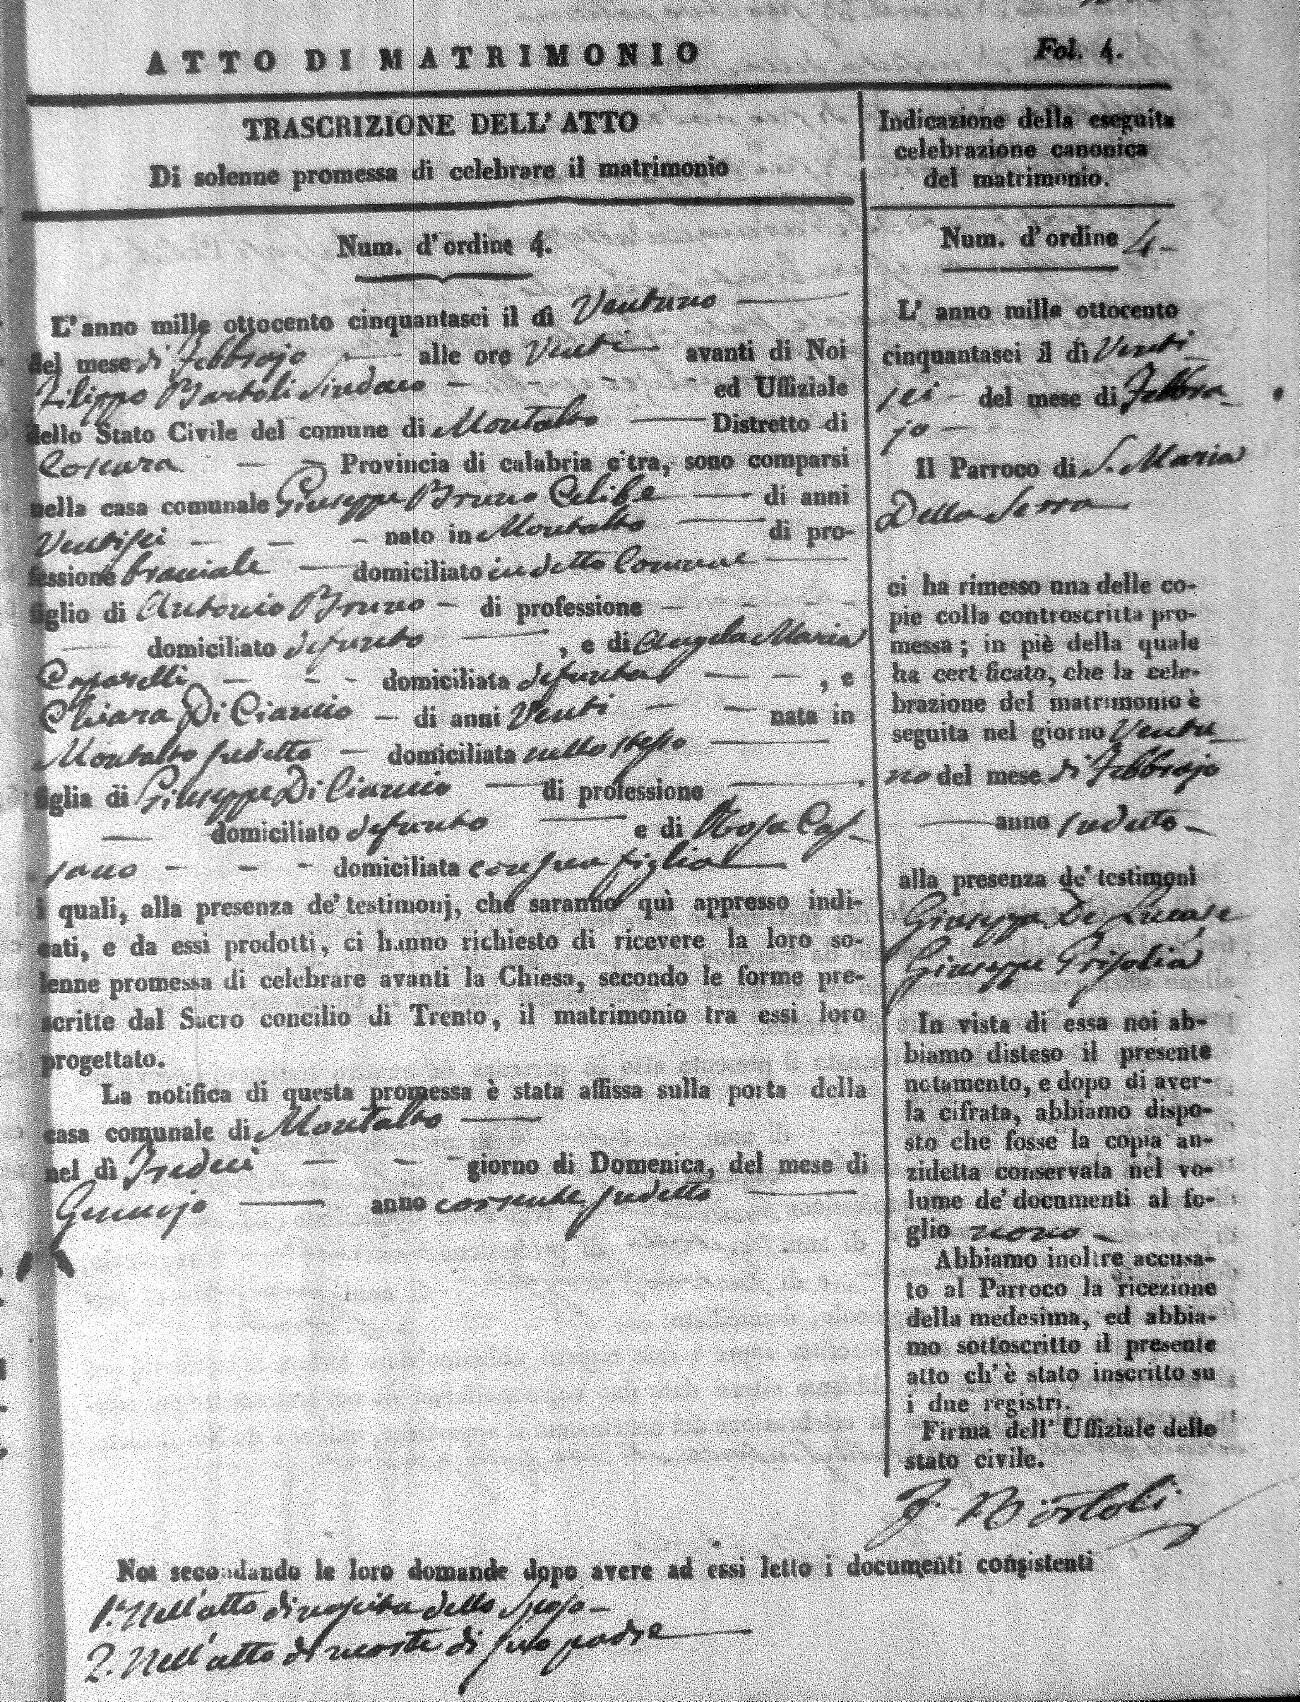 ATTO DI MATRIMONIO
Fol. 4.
TRASCRIZIONE DELL' ATTO
Di solenne promessa di celebrare il matrimonio
Num. d'ordine 4.
L'anno mille ottocento cinquantasei il dì Ventuno
del mese di Febbrajo alle ore Venti avanti di Noi
Filippo Bartoli Sindaco ed Uffiziale
dello Stato Civile del comune di Montalto Distretto di
Cosenza Provincia di calabria citra, sono comparsi
nella casa comunale Giuseppe Bruno Celibe di anni
Ventisei nato in Montalto di pro-
fessione bracciale domiciliato in detto Comune
figlio di Antonio Bruno di professione
domiciliato defunto, e di Angela Maria
Caparelli domiciliata defunta, e
Chiara Di Ciancio di anni Venti nata in
Montalto sudetto domiciliata nello stesso
figlia di Giuseppe Di Ciancio di professione
domiciliato defunto e di Rosa Cas-
sano domiciliata con sua figlia
i quali, alla presenza de' testimonj, che saranno quì appresso indi-
cati, e da essi prodotti, ci hanno richiesto di ricevere la loro so-
lenne promessa di celebrare avanti la Chiesa, secondo le forme pre-
scritte dal Sacro concilio di Trento, il matrimonio tra essi loro
progettato.
La notifica di questa promessa è stata affissa sulla porta della
casa comunale di Montalto
nel dì Tredeci giorno di Domenica, del mese di
Gennajo anno corrente sudetto
Indicazione della eseguita
celebrazione canonica
del matrimonio.
Num. d'ordine 4
L' anno mille ottocento
cinquantasei il dì Venti
sei del mese di Febbra
jo
Il Parroco di S. Maria
Della Serra
ci ha rimesso una delle co-
pie colla controscritta pro-
messa; in piè della quale
ha certificato, che la cele-
brazione del matrimonio è
seguita nel giorno Ventu
no del mese di Febbrajo
anno sudetto
alla presenza de' testimoni
Giuseppe De Luca, e
Giuseppe Grisolia
In vista di essa noi ab-
biamo disteso il presente
notamento, e dopo di aver-
la cifrata, abbiamo dispo-
sto che fosse la copia an-
zidetta conservata nel vo-
lume de' documenti al fo-
glio nono
Abbiamo inoltre accusa-
to al Parroco la ricezione
della medesima, ed abbia-
mo sottoscritto il presente
atto ch'è stato inscritto su
i due registri.
Firma dell' Uffiziale dello
stato civile.
F. Bartoli
Noi secondando le loro domande dopo avere ad essi letto i documenti consistenti
1.° Nell'atto di nascita dello Sposo
2. Nell'atto di morte di suo padre